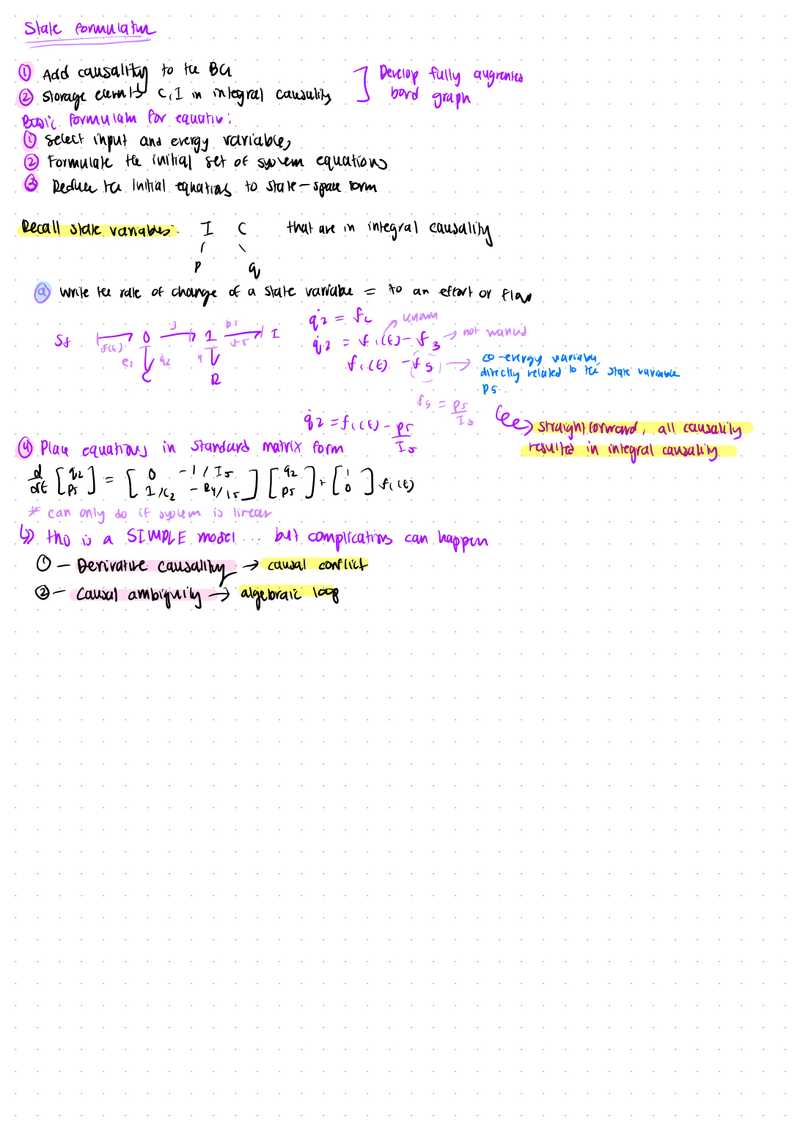 State Formulation
① Add causality to the BG
② Storage elements C, I in integral causality
Develop fully augmented
bond graph
Basic formulam for equation:
① Select input and energy variables
② Formulate the initial set of system equations
③ Reduce the initial equations to state-space form
Recall state variables: I C that are in integral causality
p q
ⓐ write the rate of change of a state variable = to an effort or flow
Sf 0 1 I
f(t) 3 f5
e2 q2 4
C R
q̇2 = f2
known
q̇2 = f1(t) - f3 → not wanted
f1(t) - f5 → co-energy variable,
directly related to the state variable
p5
f5 = p5/I5
q̇2 = f1(t) - p5/I5
straightforward, all causality
resulted in integral causality
④ Place equations in standard matrix form
d/dt [q2 p5] = [0 -1/I5 1/C2 -R4/I5] [q2 p5] + [1 0] f1(t)
* can only do if system is linear
↳ this is a SIMPLE model... but complications can happen
① - Derivative causality → causal conflict
② - causal ambiguity → algebraic loop